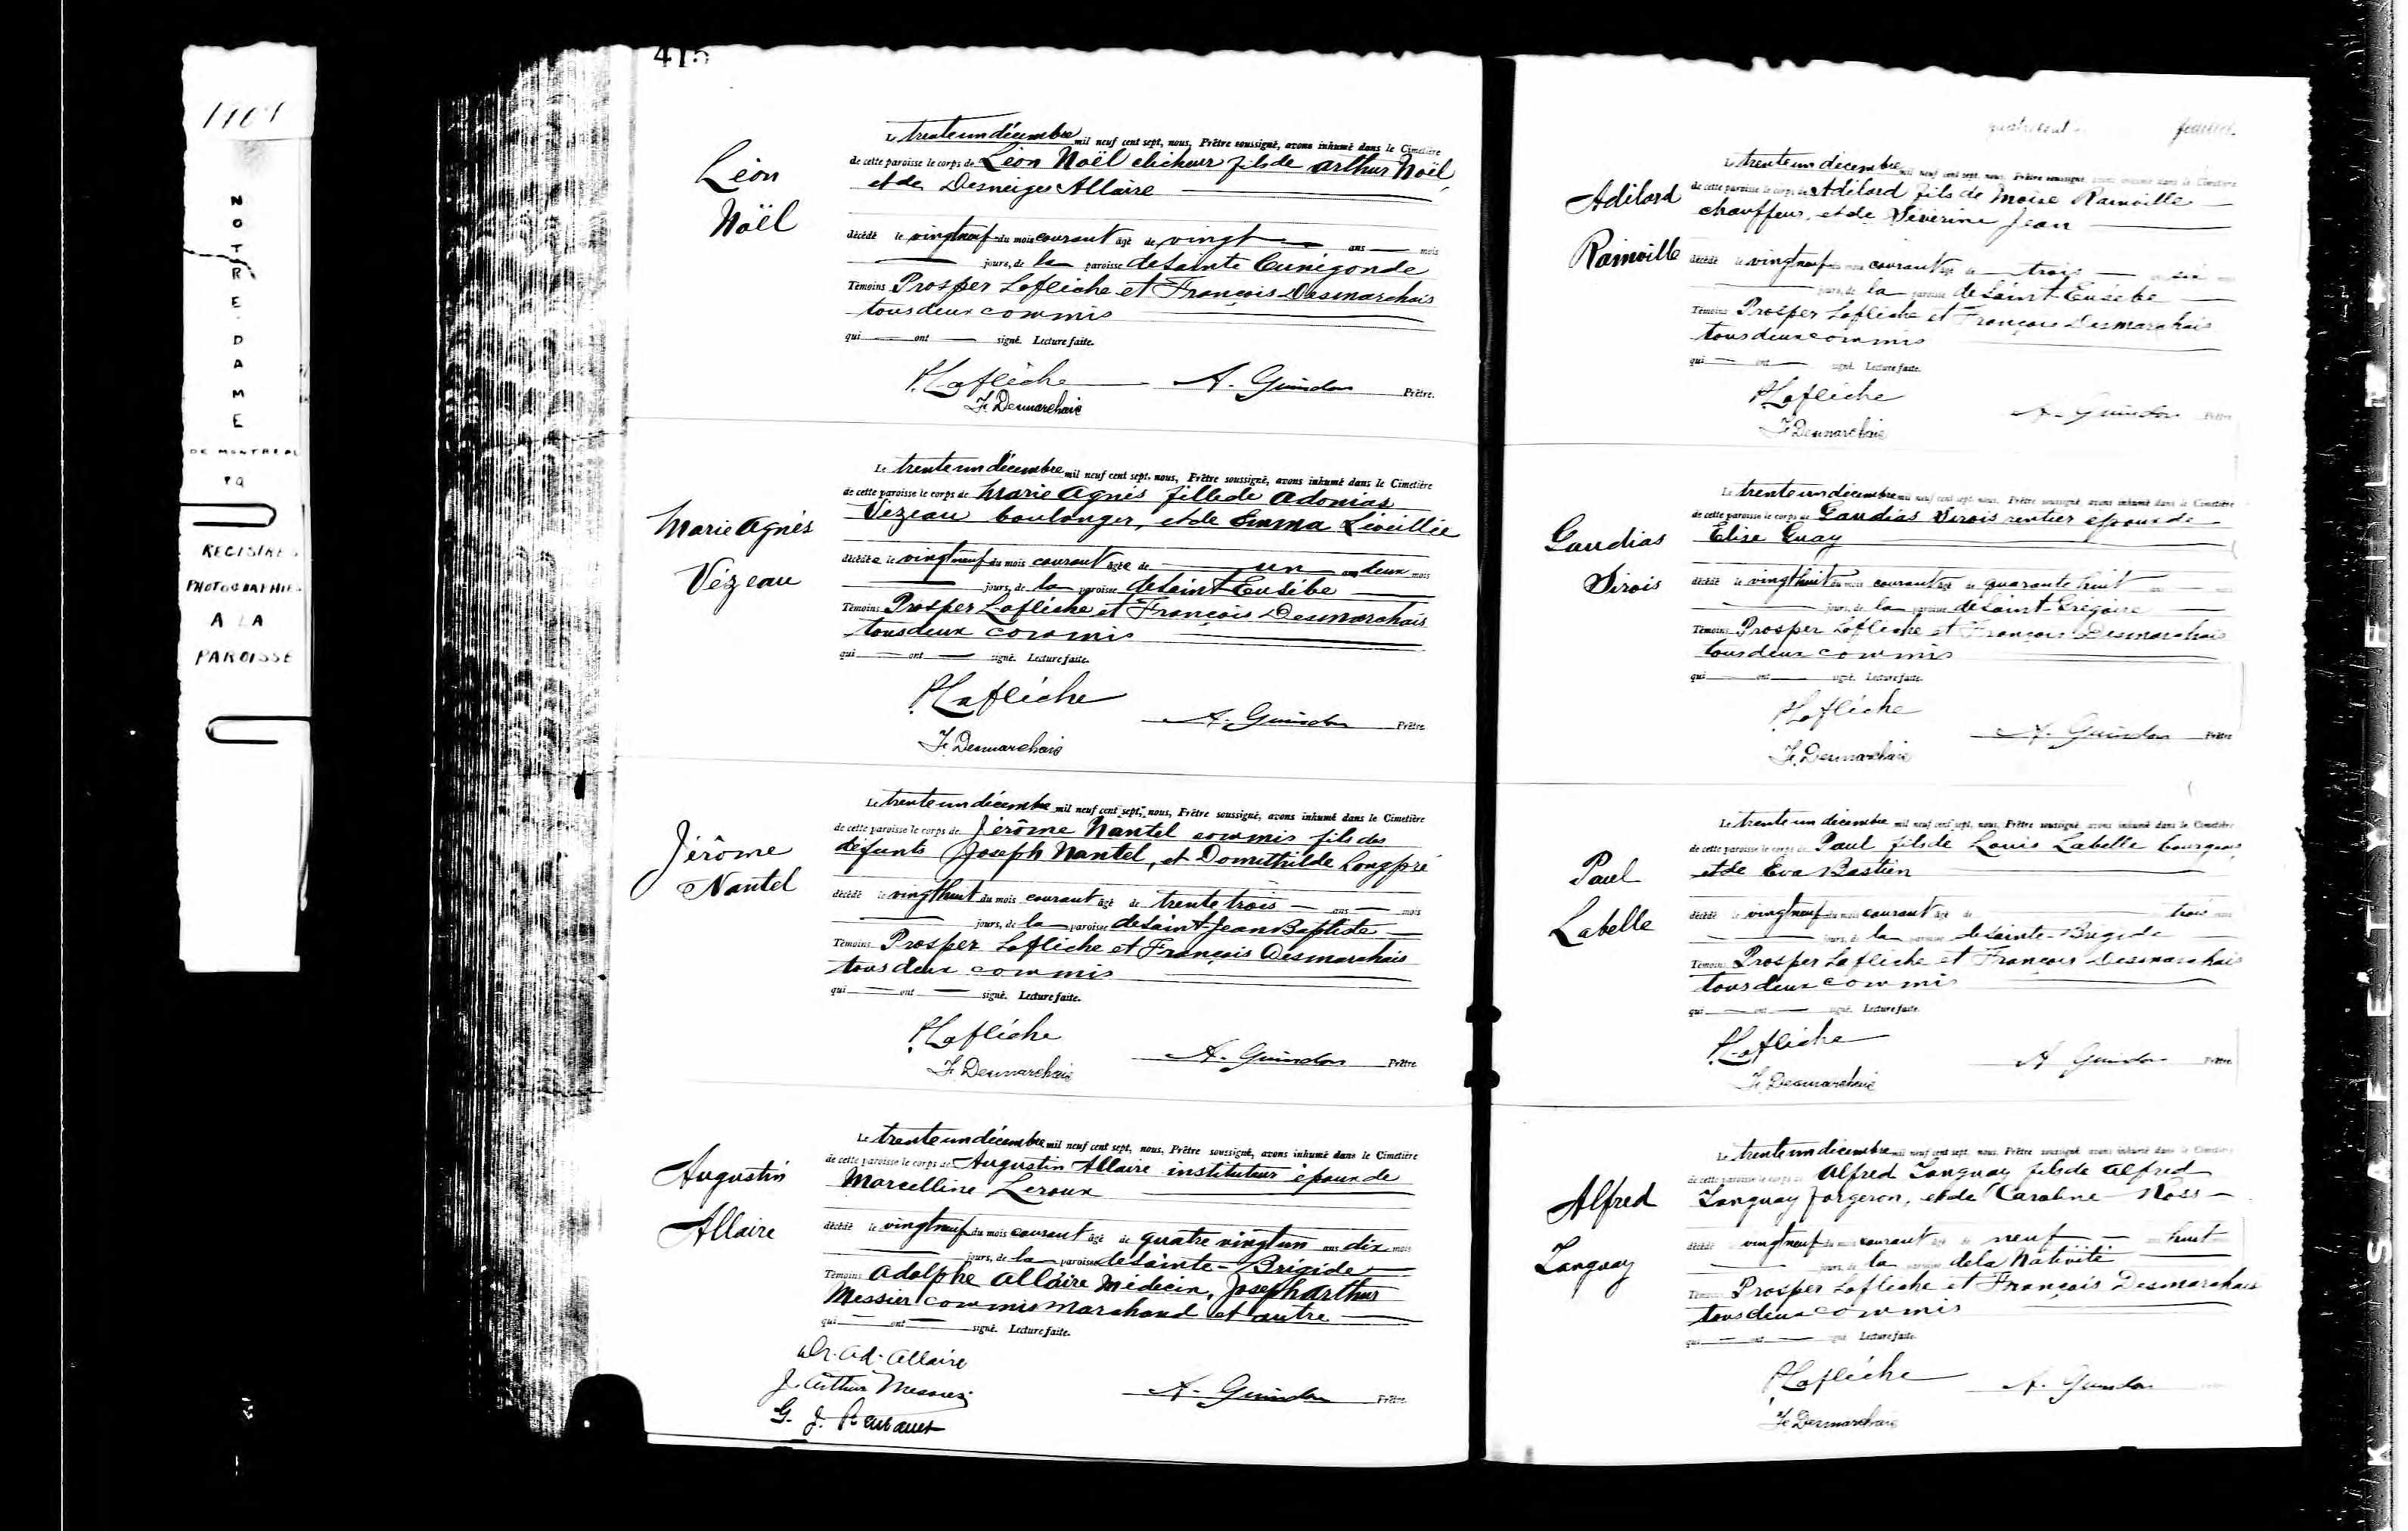 NOTRE DAME
DE MONTREAL
PQ
REGISTRES
PHOTOGRAPHIES
A LA
PAROISSE
415
Léon
Noël
Le trente un décembre mil neuf cent sept, nous, Prêtre soussigné, avons inhumé dans le Cimetière
de cette paroisse le corps de Léon Noël clicheur fils de Arthur Noël
et de Desneiges Allaire
décédé le vingt neuf du mois courant âgé de vingt ans mois
jours, de la paroisse de Sainte Cunégonde
Témoins Prosper Laflèche et François Desmarchais
tous deux commis
qui ont signé. Lecture faite.
P. Laflèche A. Guindon Prêtre.
F. Desmarchais
Marie Agnès
Vézeau
Le trente un décembre mil neuf cent sept, nous, Prêtre soussigné, avons inhumé dans le Cimetière
de cette paroisse le corps de Marie Agnès fille de Adonias
Vézeau boulanger, et de Emma Léveillée
décédée le vingt neuf du mois courant âgée de un an deux mois
jours, de la paroisse de Saint-Eusèbe
Témoins Prosper Laflèche et François Desmarchais
tous deux commis
qui ont signé. Lecture faite.
P. Laflèche
A. Guindon Prêtre
F. Desmarchais
Jérôme
Nantel
Le trente un décembre mil neuf cent sept, nous, Prêtre soussigné, avons inhumé dans le Cimetière
de cette paroisse le corps de Jérôme Nantel commis fils des
défunts Joseph Nantel, et Domithilde Longpré
décédé le vingt huit du mois courant âgé de trente trois ans mois
jours, de la paroisse de Saint-Jean Baptiste
Témoins Prosper Laflèche et François Desmarchais
tous deux commis
qui ont signé. Lecture faite.
P. Laflèche
A. Guindon Prêtre
F. Desmarchais
Augustin
Allaire
Le trente un décembre mil neuf cent sept, nous, Prêtre soussigné, avons inhumé dans le Cimetière
de cette paroisse le corps de Augustin Allaire instituteur époux de
Marcelline Leroux
décédé le vingt neuf du mois courant âgé de quatre vingt un ans dix mois
jours, de la paroisse de Sainte-Brigide
Témoins Adolphe Allaire Médecin, Joseph Arthur
Messier commis marchand et autre
qui ont signé. Lecture faite.
Dr. Ad. Allaire
J. Arthur Messier
A. Guindon Prêtre
G. J.
feuillet.
Adélard
Rainville
Le trente un décembre mil neuf cent sept, nous, Prêtre soussigné, avons inhumé dans le Cimetière
de cette paroisse le corps de Adélard fils de Moïse Rainville
chauffeur, et de Séverine Jean
décédé le vingt neuf courant âgé de trois six
jours, de la paroisse de Saint-Eusèbe
Témoins Prosper Laflèche et François Desmarchais
tous deux commis
qui ont signé. Lecture faite.
P. Laflèche
A. Guindon Prêtre
F. Desmarchais
Gaudias
Sirois
Le trente un décembre mil neuf cent sept, nous, Prêtre soussigné, avons inhumé dans le Cimetière
de cette paroisse le corps de Gaudias Sirois rentier époux de
Elise Guay
décédé le vingt huit du mois courant âgé de quarante huit
jours, de la paroisse de Saint-Grégoire
Témoins Prosper Laflèche et François Desmarchais
tous deux commis
qui ont signé. Lecture faite.
P. Laflèche
A. Guindon Prêtre
F. Desmarchais
Paul
Labelle
Le trente un décembre mil neuf cent sept, nous, Prêtre soussigné, avons inhumé dans le Cimetière
de cette paroisse le corps de Paul fils de Louis Labelle bourgeois,
et de Eva Bastien
décédé le vingt neuf du mois courant âgé de trois mois
jours, de la paroisse de Sainte-Brigide
Témoins Prosper Laflèche et François Desmarchais
tous deux commis
qui ont signé. Lecture faite.
P. Laflèche
A Guindon Prêtre
F. Desmarchais
Alfred
Tanguay
Le trente un décembre mil neuf cent sept, nous, Prêtre soussigné, avons inhumé dans le Cimetière
de cette paroisse le corps de Alfred Tanguay fils de Alfred
Tanguay forgeron, et de Caroline Ross
décédé vingt neuf du mois courant âgé de neuf huit
jours, de la paroisse de la Nativité
Témoins Prosper Laflèche et François Desmarchais
tous deux commis
qui ont signé Lecture faite.
P. Laflèche A. Guindon
F. Desmarchais
K SAFETY FILM